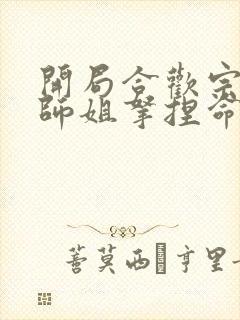 開局合歡宗
師姐拏捏命
蓍莫西·亨里